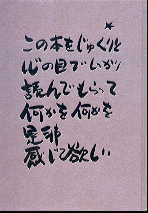 この本をじゅくりと
心の目でしっかり
読んでもらって
何かを何かを
是非
感じて欲しい